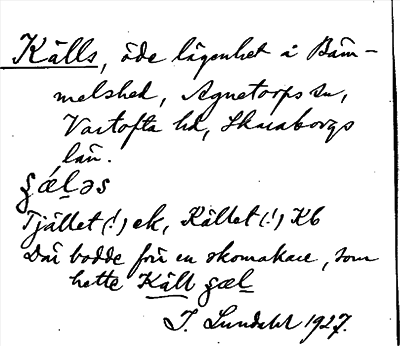 Källs, öde lägenhet å Bäm-
melshed, Agnetorps sn,
Vartofta hd, Skaraborgs
län.
Tjället (!) ek, Kället (!) Kb
Där bodde förr en skomakare, som
hette Käll
J. Lundahl 1927.